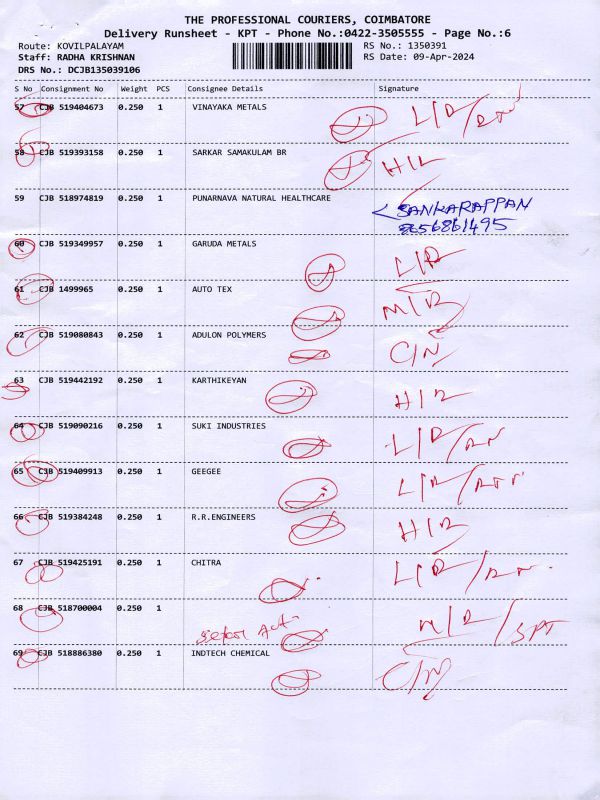 THE PROFESSIONAL COURIERS, COIMBATORE
Delivery Runsheet - KPT - Phone No.:0422-3505555 - Page No.:6
Route: KOVILPALAYAM RS No.: 1350391
Staff: RADHA KRISHNAN RS Date: 09-Apr-2024
DRS No.: DCJB135039106
S No Consignment No Weight PCS Consignee Details Signature
57 CJB 519404673 0.250 1 VINAYAKA METALS L/R/
58 CJB 519393158 0.250 1 SARKAR SAMAKULAM BR H/L
59 CJB 518974819 0.250 1 PUNARNAVA NATURAL HEALTHCARE
SANKARAPPAN
8656861495
60 CJB 519349957 0.250 1 GARUDA METALS L/R
61 CJB 1499965 0.250 1 AUTO TEX M/R
62 CJB 519080843 0.250 1 ADULON POLYMERS C/N
63 CJB 519442192 0.250 1 KARTHIKEYAN H/R
64 CJB 519090216 0.250 1 SUKI INDUSTRIES L/R/AN
65 CJB 519409913 0.250 1 GEEGEE L/R/
66 CJB 519384248 0.250 1 R.R.ENGINEERS H/R
67 CJB 519425191 0.250 1 CHITRA L/R/
68 CJB 518700004 0.250 1 M/R/SPT
69 CJB 518886380 0.250 1 INDTECH CHEMICAL C/N